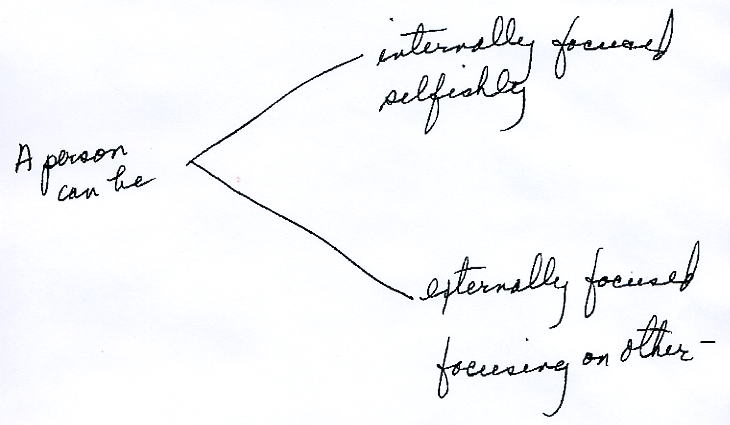 internally focused
selfishly
A person
can be
externally focused
focusing on other-